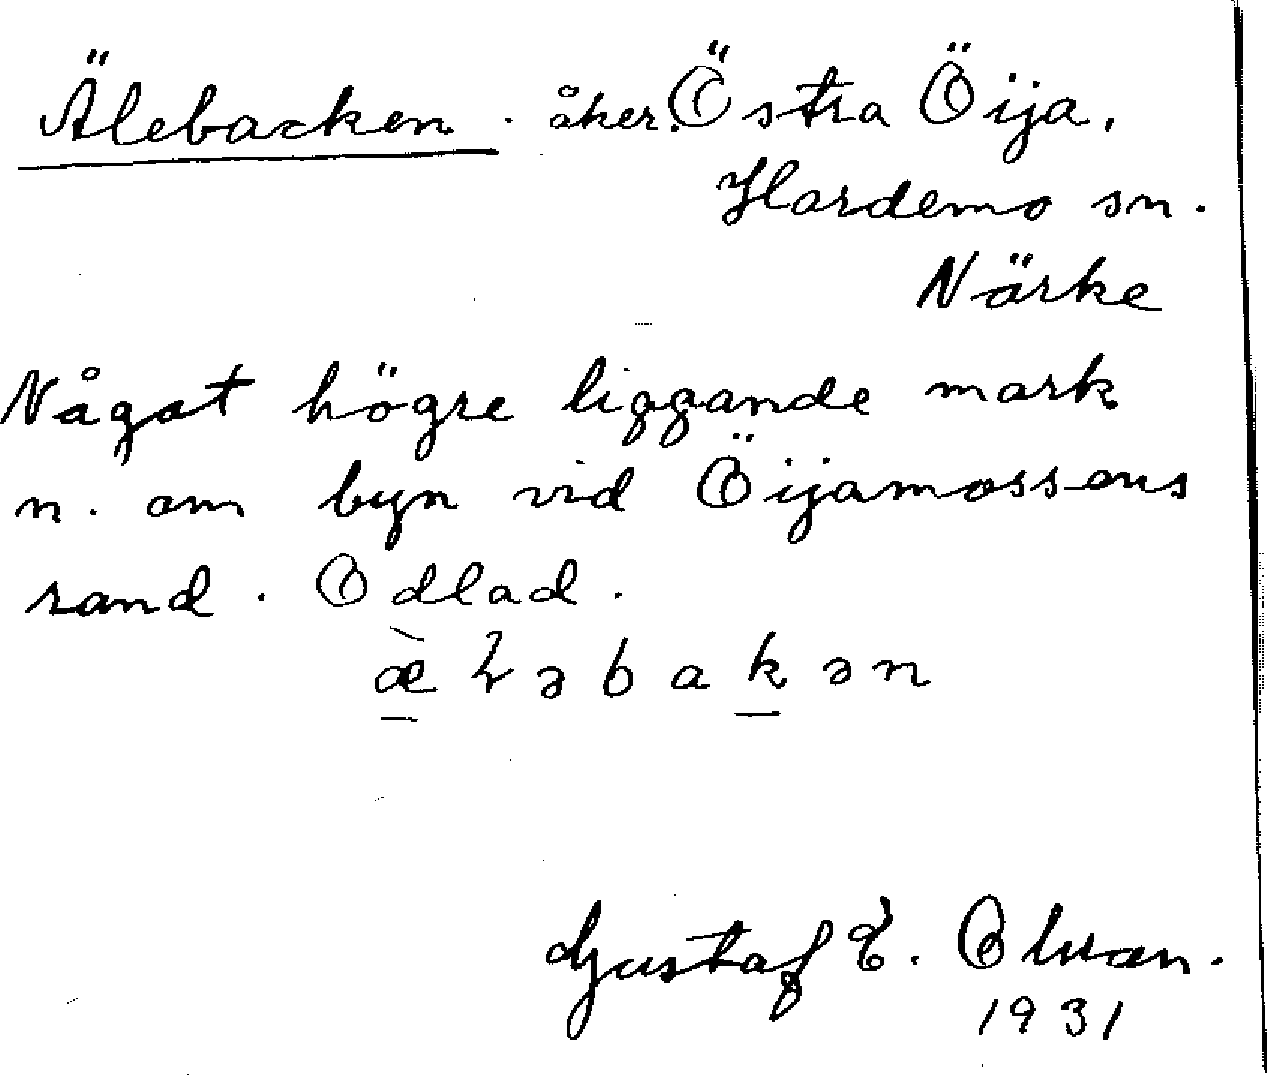 Älebacken. åker. Östra Öija,
Hardemo sn.
Närke
Något högre liggande mark
n. om byn vid Öijamossens
rand. Odlad.
æ̀ɽəbakən
Gustaf E. Olvan.
1931